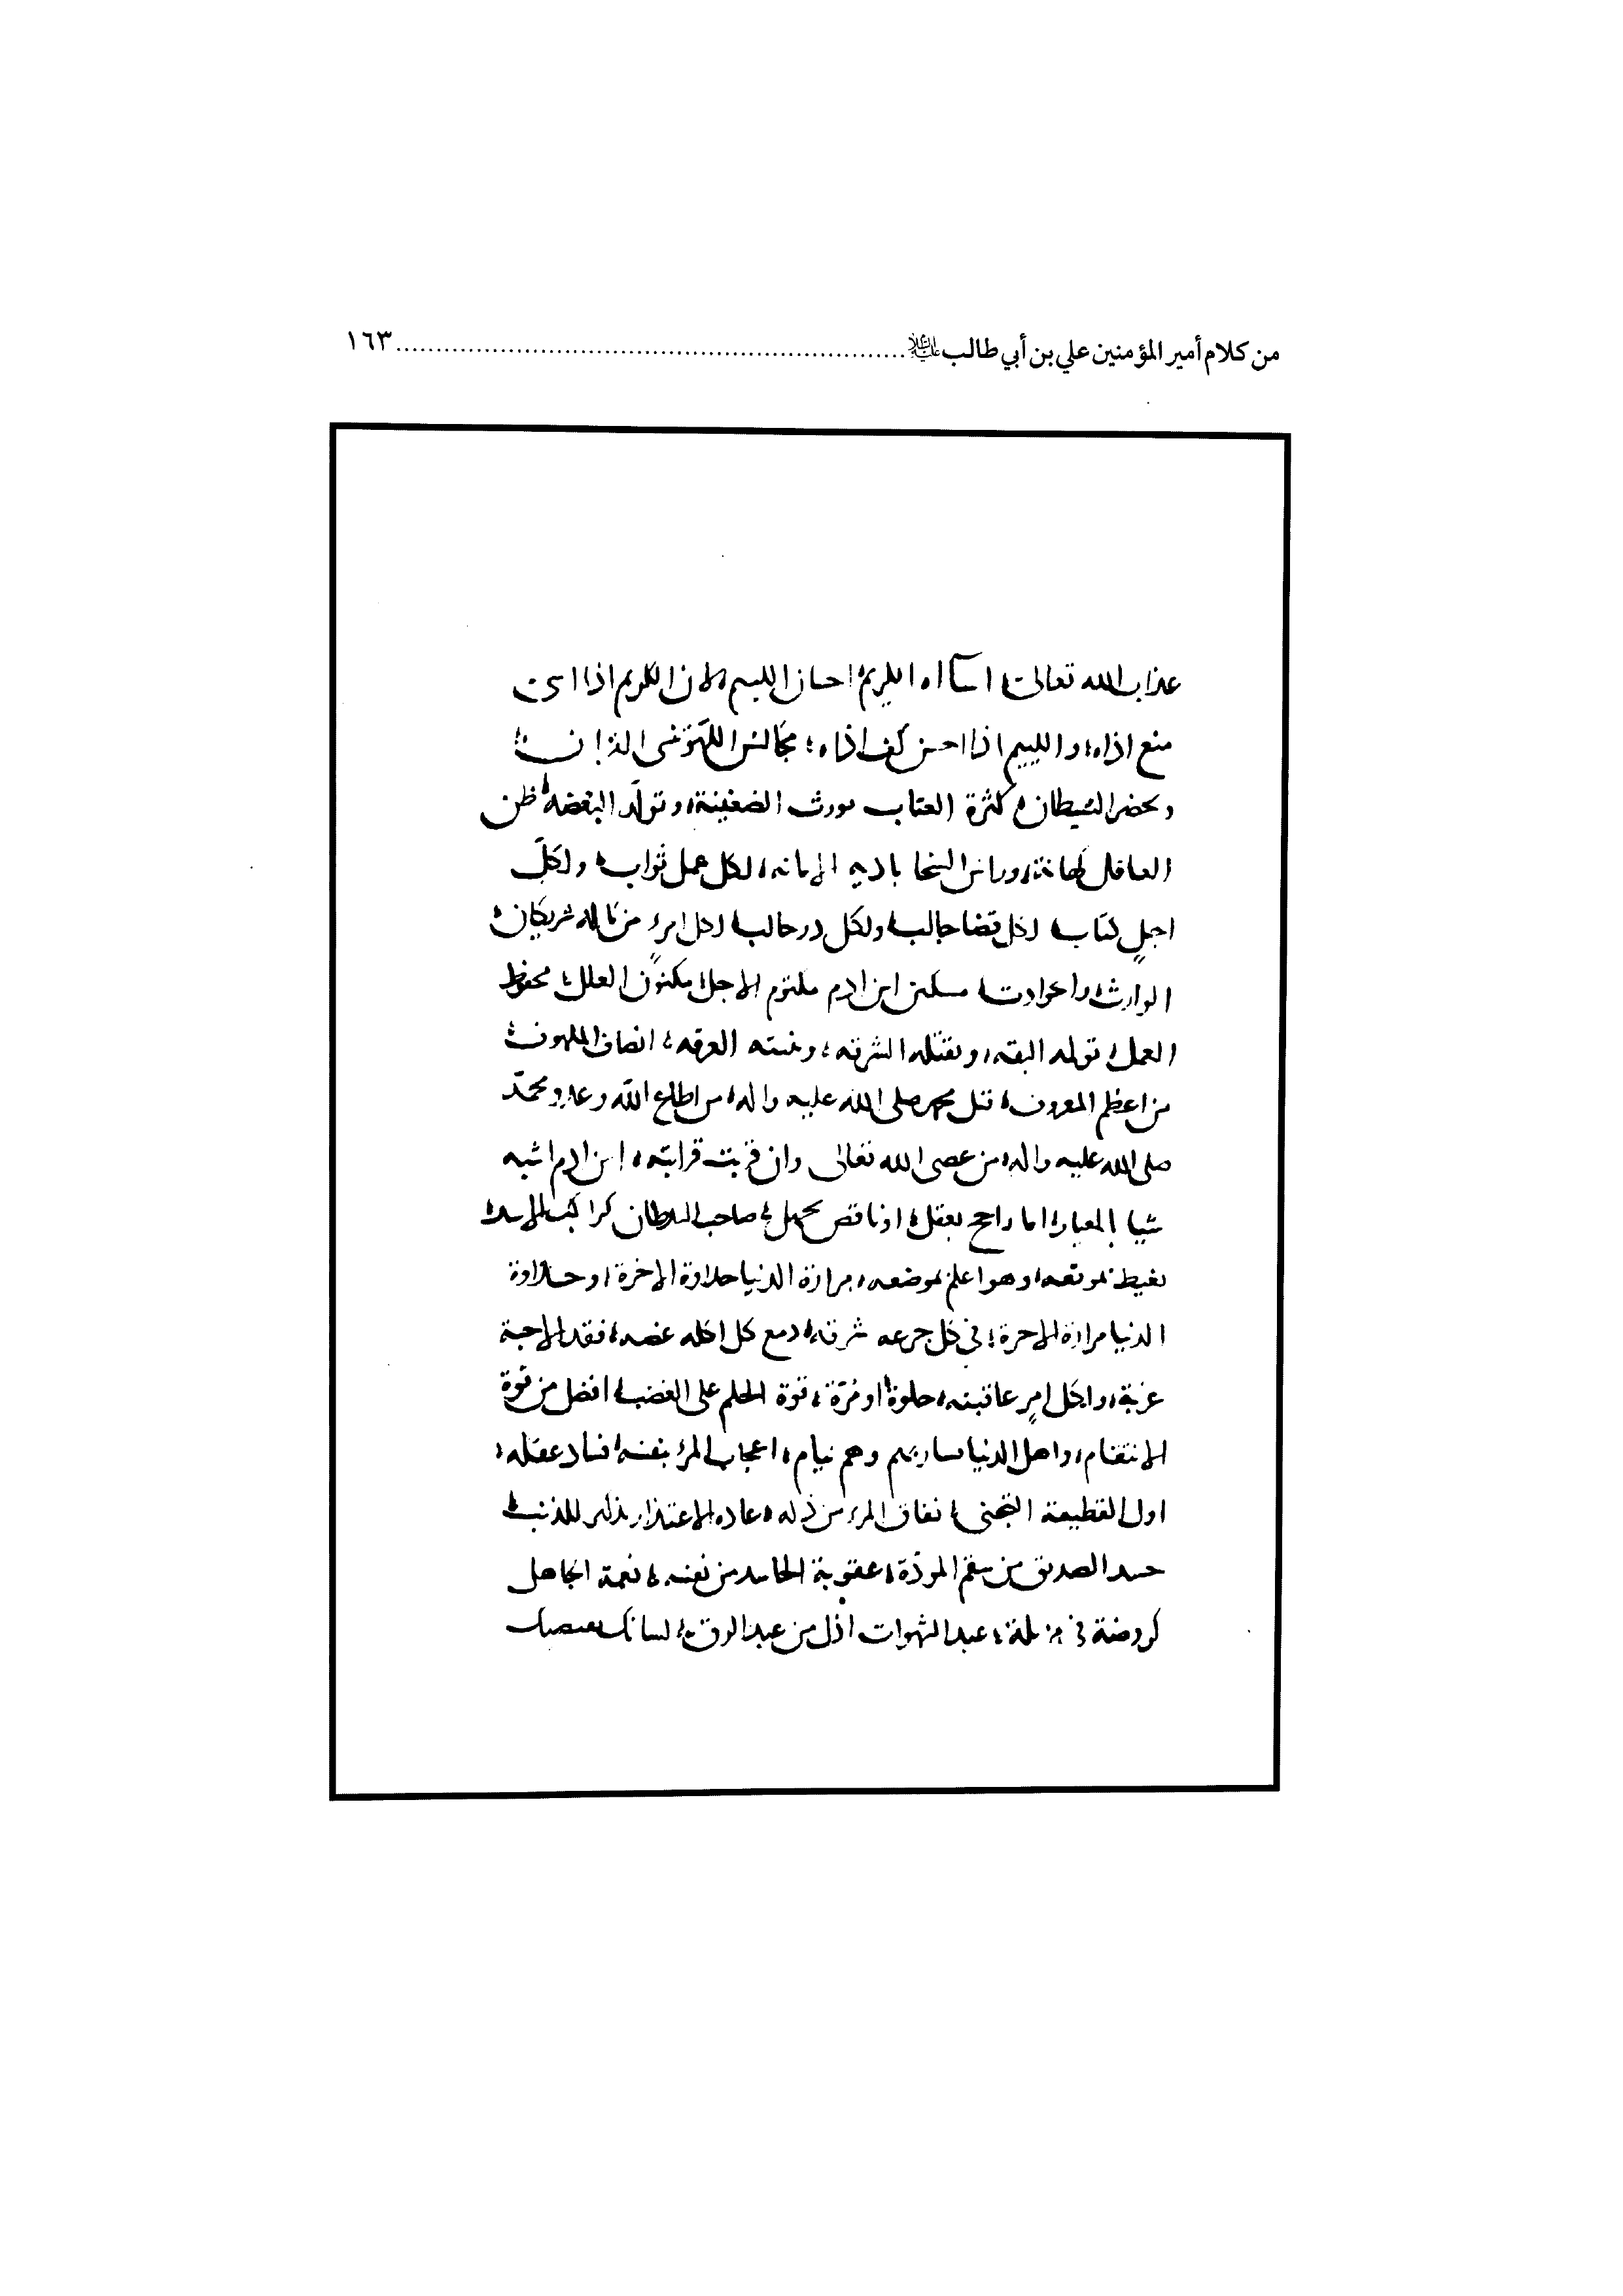 من كلام أمير المؤمنين علي بن أبي طالب عليه السلام ........ ١٦٣
عذاب الله تعالى، اساءه الكريم احسان الليم، لان الكريم اذا اسى
منع اذاه، والليم اذا احسن كف اذاه؛ مجالس اللهو
وتحضر الشيطان، كثرة العتاب يورث الضغينة، وتولّد البغضه، ظن
العاقل كهانة، وراس السخا ناديه الامانه، لكل عمل ثواب، ولكلّ
اجلٍ كتاب، لكل قضا جالب، ولكل در حالب، لكل امرءٍ من ماله شريكان،
الوارث، والحوادث، مسكين ابن ادم مكتوم الاجل، مكنون العلل، محفوظ
العمل، تولمه البقه، وتقتله الشرقه، وتنتنه العرقه، انصاف الملهوف،
من اعظم المعروف، محمد صلى الله عليه واله، من اطاع الله وعدو محمّد
صلى الله عليه واله، من عصى الله تعالى وان قربت قرابته، ابن ادم اشبه
شيا بالمعيار، اما راجح بعقل، او ناقص بجهل، صاحب السلطان كراكب الاسد،
يغبط بموقعه، وهو اعلم بموضعه، مرارة الدنيا حلاوة الاخرة، وحلاوة
الدنيا مرارة الاخرة؛ في كل جرعه شرقه، ومع كل اكله غصه، فقد الاحبة
غربة، ولكل امرٍ عاقبته، حلوة، او مُرّة، قوة الحلم على الغضب، افضل من قوة
الانتقام، واهل الدنيا يسار بهم وهم نيام، اعجاب المرؤ بنفسه، فساد عقله،
اول القطيعة التجني، نفاق المرء من ذله، عاده الاعتذار للذنب،
حسد الصديق من سقم المودّة، عقوبة الحاسد من نفسه، نعمة الجاهل
كروضة في مزبلة، عبد الشهوات اذل من عبد الرق، لسانك يقتضيك